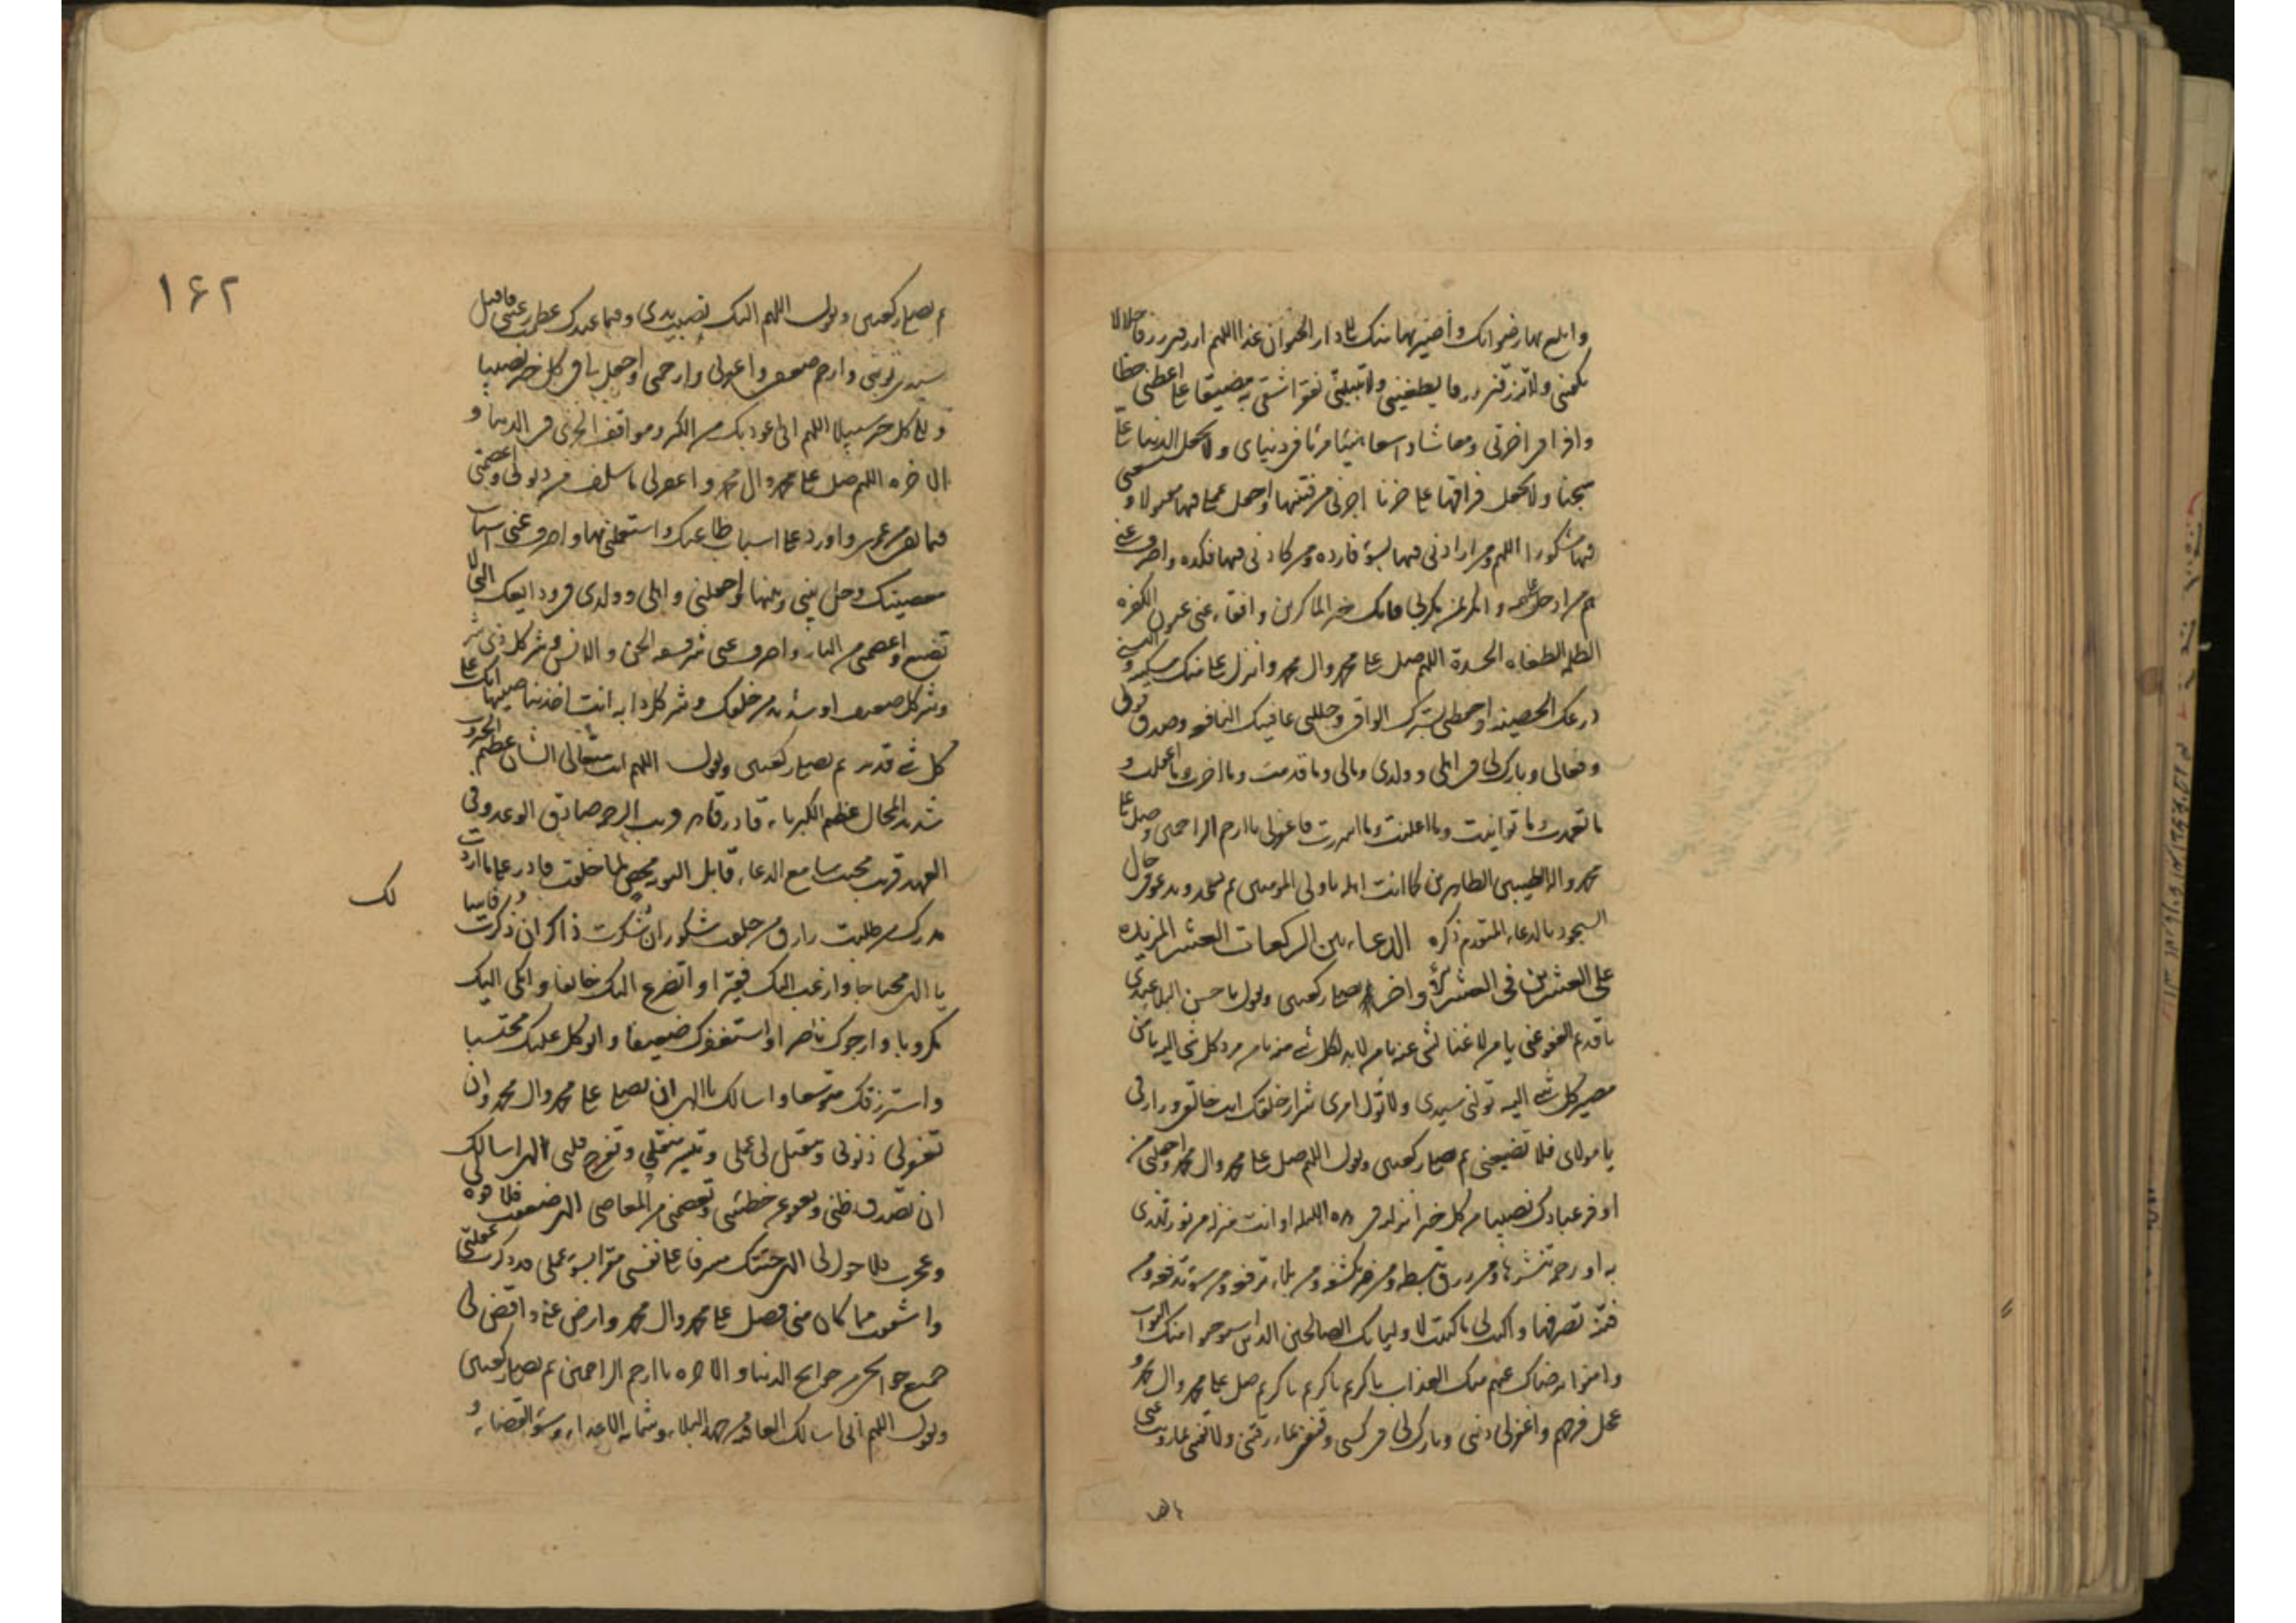 وابلغ بها رضوانك وأصير بها منك الى دار الحيوان غدا اللهم ارزقنى رزقا حلالا
يكفينى ولا ترزقنى رزقا يطغينى ولا تبتلينى بفقر اشقى به مضيقا على اعطنى حظا
وافرا فى اخرتى ومعاشا واسعا هنيئا مريئا فى دنياى ولا تجعل الدنيا على
سجنا ولا تجعل فراقها على حزنا اجرنى من فتنتها واجعل عملى فيها مقبولا و سعيى
فيها مشكورا اللهم ومن ارادنى فيها بسوء فارده ومن كادنى فيها فكده واصرف عنى
هم من ادخل على همه وامكر بمن مكر بى فانك خير الماكرين وافقاء عنى عيون الكفره
الظلمه الطغاه الحسدة اللهم صل على محمد وال محمد وانزل على منك سكينه و البسنى
درعك الحصينه واحفظنى بسترك الواقى وجللنى عافيتك النافعه وصدق قولى
وفعالى وبارك لى فى اهلى وولدى ومالى وما قدمت وما اخرت وما اغفلت و
ما تعمدت وما توانيت وما اعلنت وما اسررت فاغفر لى يا ارحم الراحمين وصل على
محمد واله الطيبين الطاهرين كما انت اهله يا ولى المومنين ثم تسجد وتدعو فى حال
السجود بالدعاء المتقدم ذكره الدعاء بين الركعات العشر المزيده
على العشرين فى العشر الاواخر تصلى ركعتين وتقول يا حسن البلاء عندى
يا قديم العفو عنى يا من لا غناء لشى عنه يا من لا بد لكل شى منه يا من مرد كل شى اليه يا من
مصير كل شى اليه تولنى سيدى ولا تول امرى شرار خلقك انت خالقى ورازقى
يا مولاى فلا تضيعنى ثم تصلى ركعتين وتقول اللهم صل على محمد وال محمد واجعلنى من
اوفر عبادك نصيبا من كل خير انزلته فى هذه الليله او انت منزله من نور تهدى
به او رحمه تنشرها ومن رزق تبسطه ومن ضر تكشفه ومن بلاء ترفعه ومن سوء تدفعه ومن
فتنه تصرفها واكتب لى ما كتبت لاوليائك الصالحين الذين استوجبوا منك الثواب
وامنوا برضاك عنهم منك العذاب يا كريم يا كريم يا كريم صل على محمد وال محمد و
عجل فرجهم واغفر لى ذنبى وبارك لى فى كسبى وقنعنى بما رزقتنى ولا تفتنى بما زويت عنى
١٦٢
ثم تصلى ركعتين وتقول اللهم اليك نصبت يدى وفيما عندك عظمت رغبتى فاقبل
سيدى توبتى وارحم ضعفى واغفر لى وارحمنى واجعل لى فى كل خير نصيبا
و الى كل خير سبيلا اللهم انى اعوذ بك من الكبر ومواقف الخزى فى الدنيا و
الاخره اللهم صل على محمد وال محمد واغفر لى ما سلف من ذنوبى واعصمنى
فيما بقى من عمرى واورد على اسباب طاعتك واستعملنى بها واصرف عنى اسباب
معصيتك وحل بينى وبينها واجعلنى واهلى وولدى فى ودايعك التى لا
تضيع واعصمنى من النار واصرف عنى شر فسقه الجن والانس وشر كل ذى شر
وشر كل ضعيف او شديد من خلقك وشر كل دابه انت اخذ بناصيتها انك على
كل شى قدير ثم تصلى ركعتين وتقول اللهم انت متعالى الشان عظيم الجبروت
شديد المحال عظيم الكبرياء قادر قاهر قريب الرحمه صادق الوعد وفى
العهد قريب مجيب سامع الدعاء قابل التوبه محصى لما خلقت قادر على ما اردت
مدرك من طلبت رازق من خلقت شكور ان شكرت ذاكر ان ذكرت
لك
يا الهى محتاجا وارغب اليك فقيرا واتضرع اليك خائفا وابكى اليك
مكروبا وارجوك ناصرا واستغفرك ضعيفا واتوكل عليك محتسبا
واسترزقك متوسعا واسالك يا الهى ان تصلى على محمد وال محمد وان
تغفر لى ذنوبى وتتقبل لى عملى وتيسر منقلبى وتفرج قلبى الهى اسالك
ان تصدق ظنى وتعفو عن خطيئتى وتعصمنى من المعاصى الهى ضعفت فلا قوه لى
وعجزت فلا حول لى الهى جئتك مسرفا على نفسى مقرا بسوء عملى قد ذكرت غفلتى
واشفقت مما كان منى فصل على محمد وال محمد وارض عنى واقض لى
جميع حوائجى من حوائج الدنيا والاخره يا ارحم الراحمين ثم تصلى ركعتين
وتقول اللهم انى اسالك العافيه من جهد البلاء وشماته الاعداء وسوء القضاء و